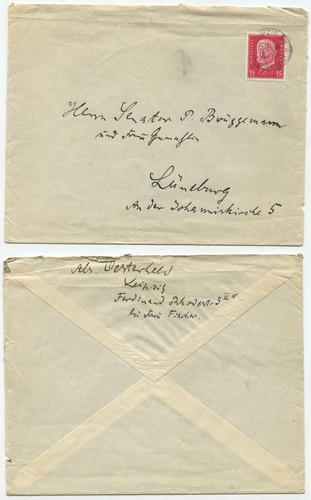 15 15
Herrn Senator P. Brüggemann
und Frau Gemahlin
Lüneburg
An der Johanniskirche 5
Abs. Oesterheld
Leipzig
Ferdinand Rhodestr. 5 III r
bei Frau Fischer.